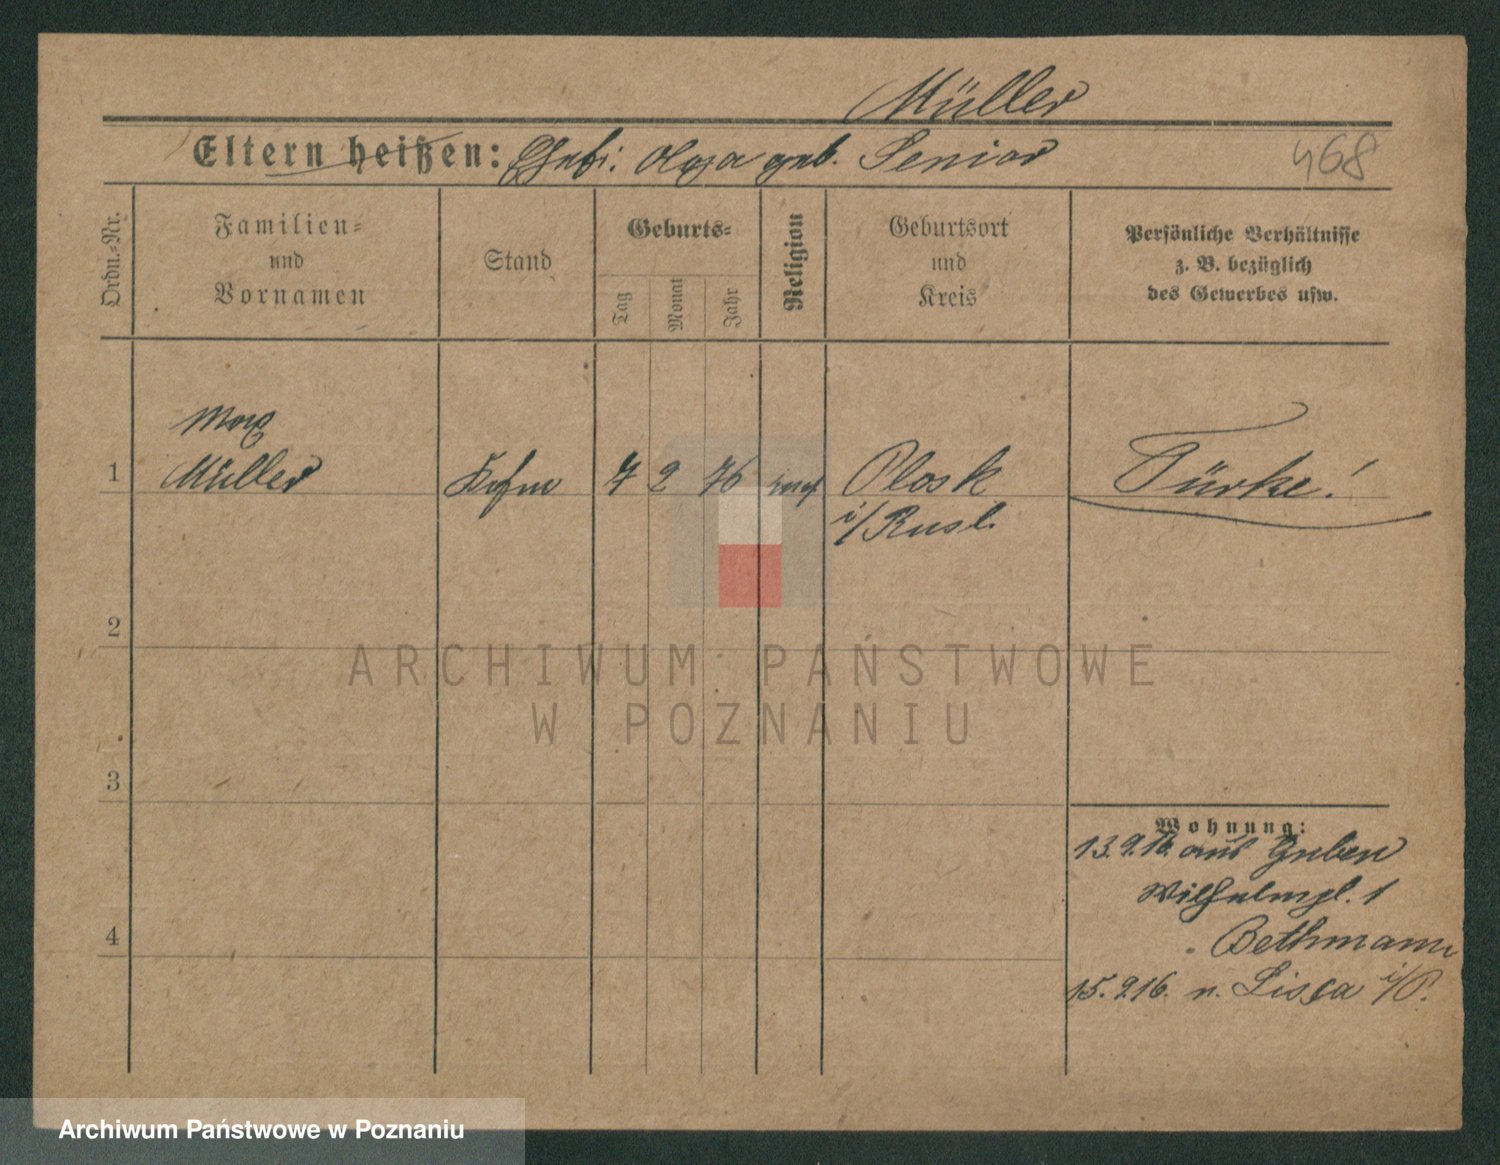 Müller
Eltern heißen: Ehefr: Olga geb. Senior
468
Ordn.-Nr.
Familien-
und
Vornamen
Stand
Geburts-
Tag
Monat
Jahr
Religion
Geburtsort
und
Kreis
Persönliche Verhältnisse
z. B. bezüglich
des Gewerbes usw.
Max
1 Müller Kfm 7 2 76 Plosk Türke!
i/Rusl.
2
3
4
Wohnung:
13.9.16. aus Guben
Wilhelmpl. 1
Bethmann
15.9.16. n. Lissa i/P.
ARCHIWUM PAŃSTWOWE
W POZNANIU
Archiwum Państwowe w Poznaniu